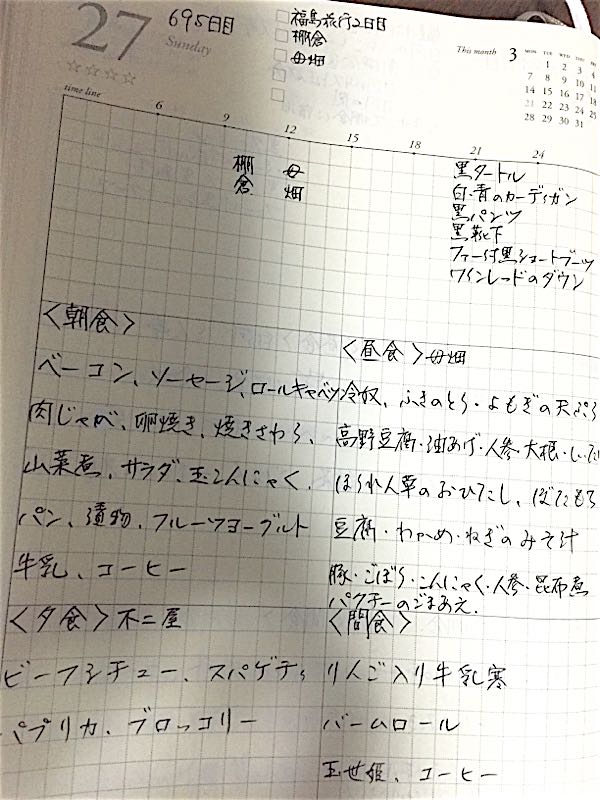 27
695日目
Sunday
☆☆☆☆
福島旅行2日目
棚倉
母畑
This month 3
MON TUE WED THU FRI
1 2 3 4
7 8 9 10 11
14 15 16 17 18
21 22 23 24
28 29 30 31
time line
6 9 12 15 18 21 24
棚倉
母畑
黒タートル
白・青のカーディガン
黒パンツ
黒靴下
ファー付黒ショートブーツ
ワインレッドのダウン
<朝食>
ベーコン、ソーセージ、ロールキャベツ
肉じゃが、卵焼き、焼きさわら、
山菜煮、サラダ、玉こんにゃく、
パン、漬物、フルーツヨーグルト
牛乳、コーヒー
<昼食>母畑
冷奴、ふきのとう・よもぎの天ぷら
高野豆腐・油あげ・人参・大根・しいた
ほうれん草のおひたし、ぼたもち
豆腐・わかめ・ねぎのみそ汁
豚・ごぼう・こんにゃく・人参・昆布煮
パクチーのごまあえ、
<夕食>不二屋
ビーフシチュー、スパゲティ
パプリカ、ブロッコリー
<間食>
りんご入り牛乳寒
バームロール
玉世姫、コーヒー